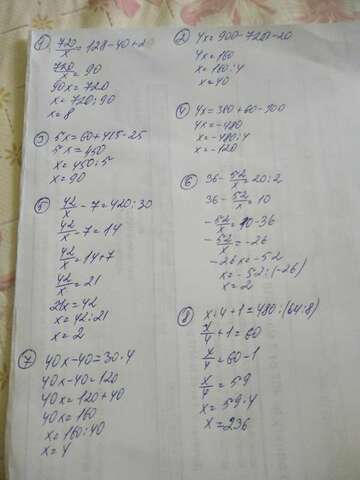 1) 720/x = 128-40+2
720/x = 90
90x = 720
x = 720:90
x = 8
3) 5x = 60+415-25
5x = 450
x = 450:5
x = 90
5) 42/x - 7 = 420:30
42/x - 7 = 14
42/x = 14+7
42/x = 21
21x = 42
x = 42:21
x = 2
7) 40x-40 = 30·4
40x-40 = 120
40x = 120+40
40x = 160
x = 160:40
x = 4
2) 4x = 900-720-20
4x = 160
x = 160:4
x = 40
4) 4x = 360+60-900
4x = -480
x = -480:4
x = -120
6) 36 - 52/x = 20:2
36 - 52/x = 10
-52/x = 10-36
-52/x = -26
-26x = -52
x = -52:(-26)
x = 2
8) x:4+1 = 480:(64:8)
x/4 + 1 = 60
x/4 = 60-1
x/4 = 59
x = 59·4
x = 236